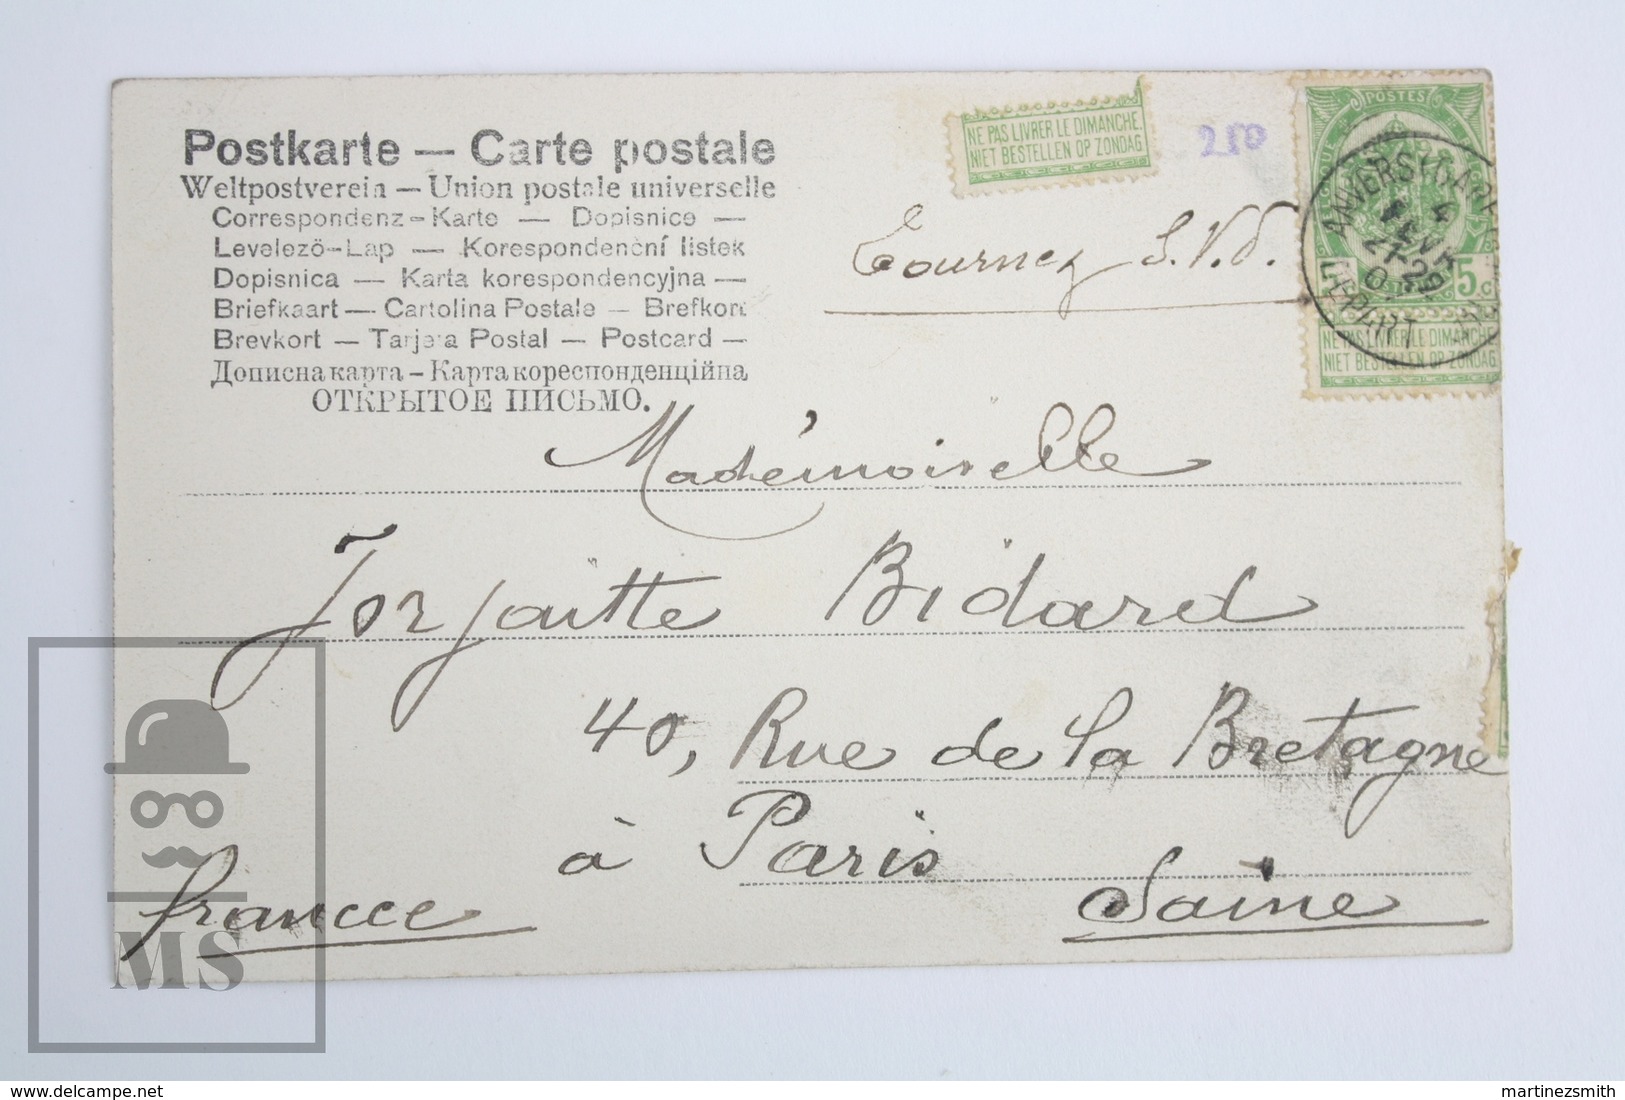 Postkarte — Carte postale
Weltpostverein — Union postale universelle
Correspondenz-Karte — Dopisnice —
Levelező-Lap — Korespondenční listek
Dopisnica — Karta korespondencyjna —
Briefkaart — Cartolina Postale — Brefkort
Brevkort — Tarjeta Postal — Postcard —
Дописна карта – Карта кореспонденційна
ОТКРЫТОЕ ПИСЬМО.
NE PAS LIVRER LE DIMANCHE.
NIET BESTELLEN OP ZONDAG
210
Tournez S.V.P.
POSTES
5 c
NE PAS LIVRER LE DIMANCHE
NIET BESTELLEN OP ZONDAG
ANVERS (GARE
DEPART
Madémoiselle
Bidard
40, Rue de la Bretagne
à Paris
francce
Saine
MS
www.delcampe.net
martinezsmith